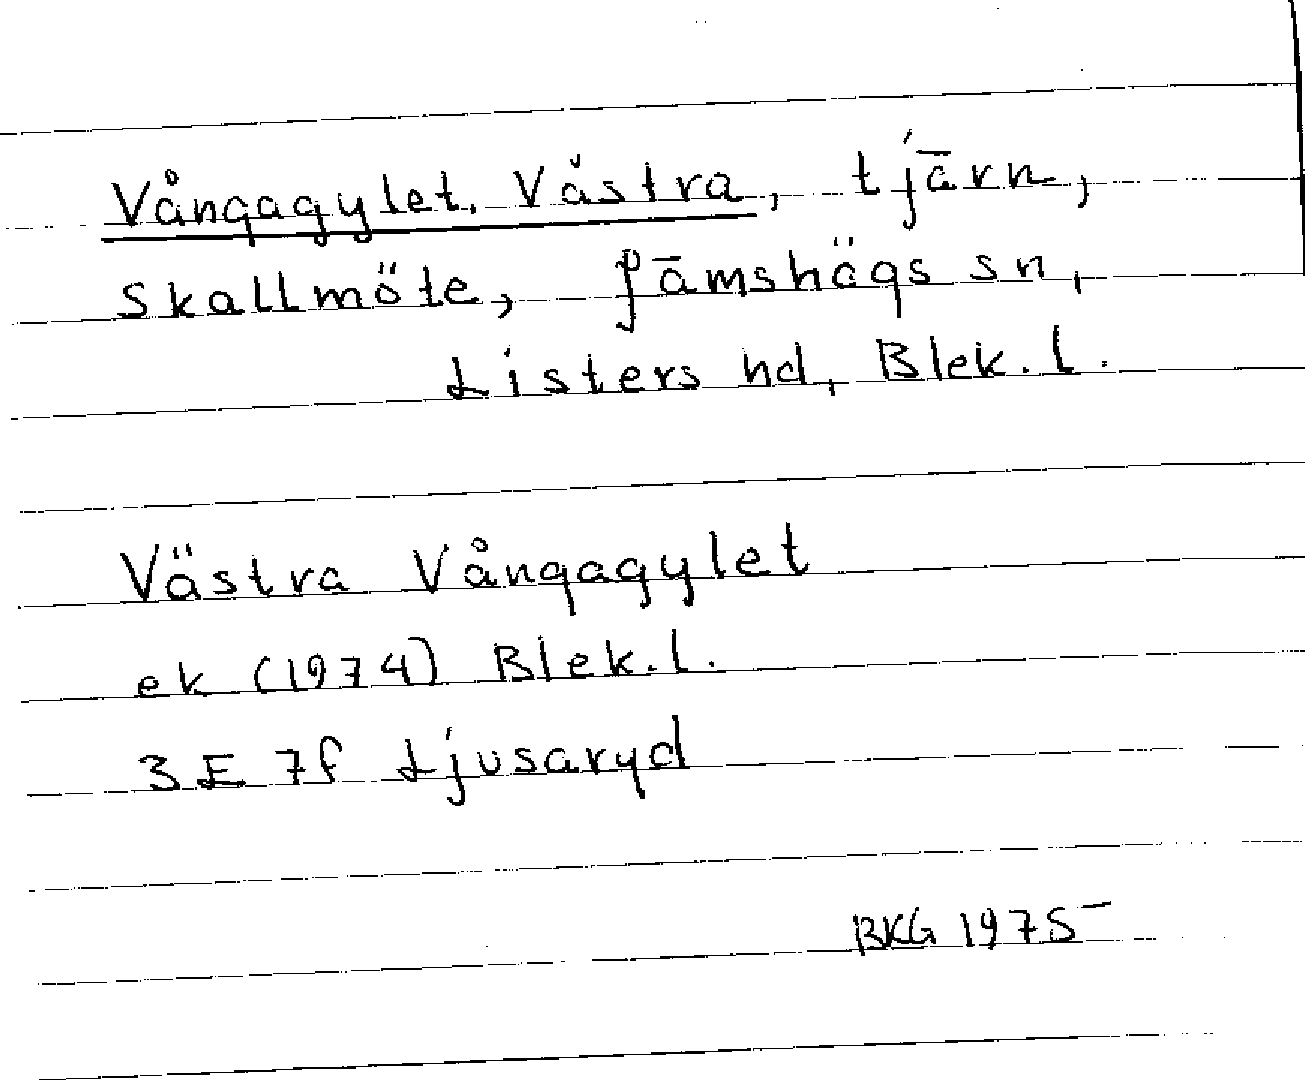 Vångagylet, Västra, tjärn,
Skallmöte, Jämshögs sn,
Listers hd, Blek. l.
Västra Vångagylet
ek (1974) Blek. l.
3E 7f Ljusaryd
BKG 1975